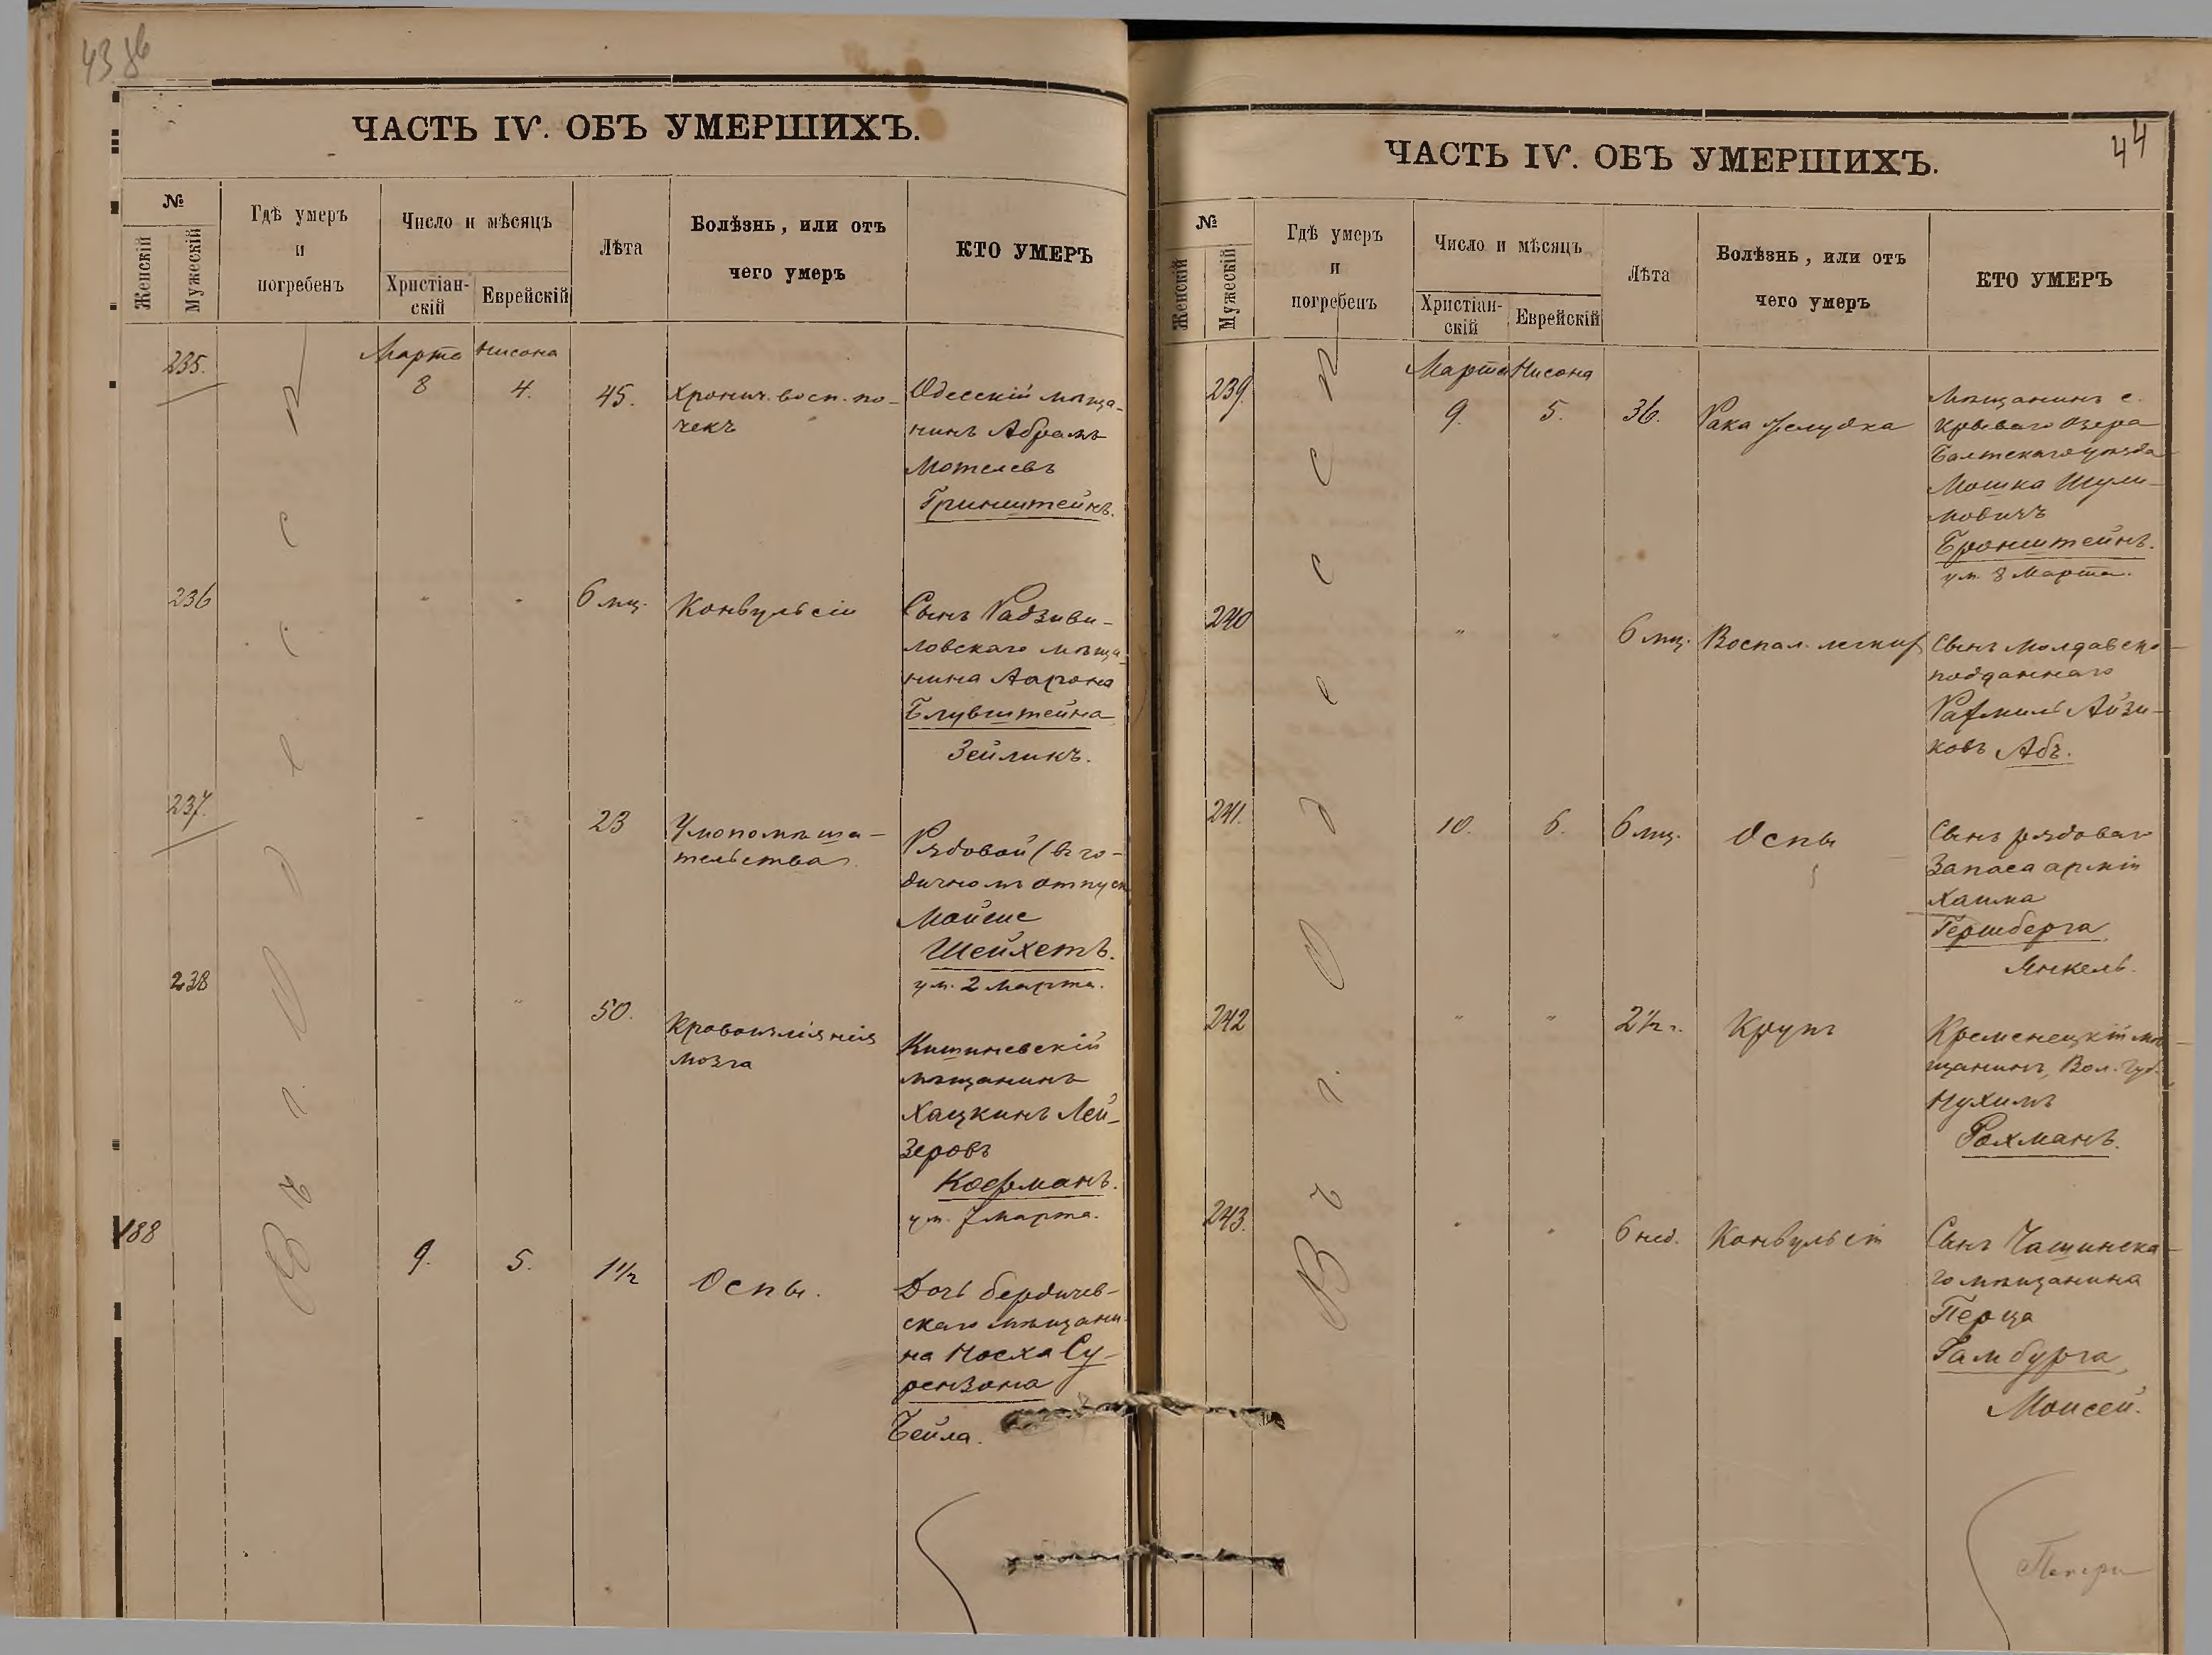 43 об
ЧАСТЬ IV. ОБЪ УМЕРШИХЪ.
№
Женскій
Мужескій
Гдѣ умеръ
и
погребенъ
Число и мѣсяцъ
Христіан-
скій
Еврейскій
Лѣта
Болѣзнь, или отъ
чего умеръ
КТО УМЕРЪ
Въ г. Одессѣ
235.
Марта Нисона
8 4. 45.
Хронич. восп. по-
чекъ
Одесскій мѣща-
нинъ Абрамъ
Мотелевъ
Гринштейнъ.
236 " " 6 мц. Конвульсіи
Сынъ Радзиви-
ловскаго мѣща-
нина Аарона
Блувштейна
Зейликъ.
237. " " 23
Умопомѣша-
тельства
Рядовой (въ го-
дичномъ отпуск
Мойше
Шейхетъ.
ум. 2 Марта.
238 " " 50.
Кровоизліянія
мозга
Кишиневскій
мѣщанинъ
Хацкинъ Лей-
зеровъ
Кофманъ.
ум. 7 Марта.
188 9. 5. 1½ Оспы.
Дочь бердичев-
скаго мѣщани-
на Носха Су-
рензона
Бейла.
44
ЧАСТЬ IV. ОБЪ УМЕРШИХЪ.
№
Женскій
Мужескій
Гдѣ умеръ
и
погребенъ
Число и мѣсяцъ
Христіан-
скій
Еврейскій
Лѣта
Болѣзнь, или отъ
чего умеръ
КТО УМЕРЪ
Въ г. Одессѣ
239.
Марта Нисона
9. 5. 36. Рака желудка
Мѣщанинъ с.
Криваго Озера
Балтскаго уѣзда
Мошка Шули-
мовичъ
Бронштейнъ.
ум. 8 Марта.
240 " " 6 мц. Воспал. легких
Сынъ Молдавско-
подданнаго
Рахмиль Айзи-
ковъ Абъ.
241. 10. 6. 6 мц. Оспы
Сынъ рядоваго
Запаса арміи
Хаима
Гершберга
Янкель.
242 " " 2½ г. Крупъ
Кременецкій мѣ-
щанинъ, Вол. губ.
Нухимъ
Рохманъ.
243. " " 6 нед. Конвульсіи
Сынъ Чашинска-
го мѣщанина
Перца
Гамбурга,
Моисей.